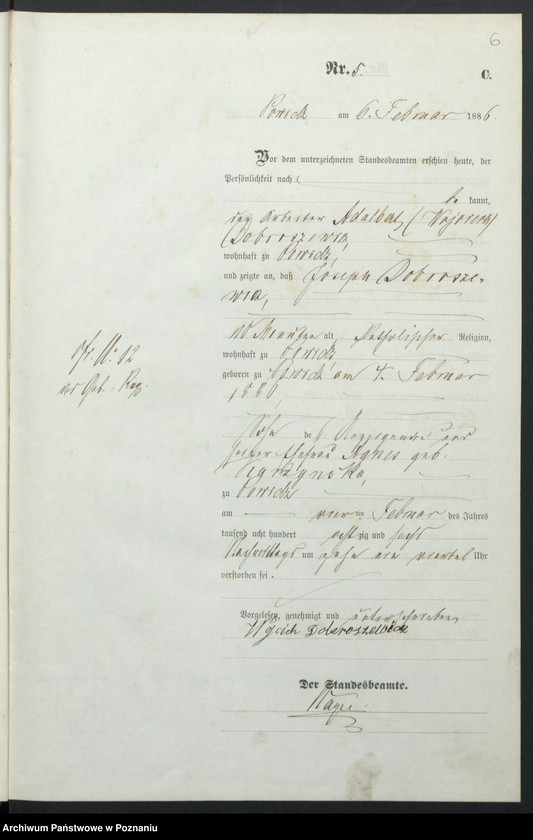 6
Nr. 5.
C.
Powidz am 6. Februar 1886.
Vor dem unterzeichneten Standesbeamten erschien heute, der
Persönlichkeit nach
be kannt,
der Arbeiter Adalbert (Wojciech)
Dobroszewicz,
wohnhaft zu Powidz,
und zeigte an, daß Joseph Dobrosze-
wicz,
10 Minuten alt, katholischer Religion,
wohnhaft zu Powidz,
geboren zu Powidz am 4. Februar
1886,
Sohn de s Anzeigenden und
seiner Ehefrau Agnes geb.
zu Powidz
am vier ten Februar des Jahres
tausend acht hundert acht zig und sechs
Nachmittags um zehn ein viertel Uhr
verstorben sei.
Vorgelesen, genehmigt und unterschrieben
Dobroszewicz
Der Standesbeamte.
cfr. No 12
des Geb.-Reg.
Archiwum Państwowe w Poznaniu